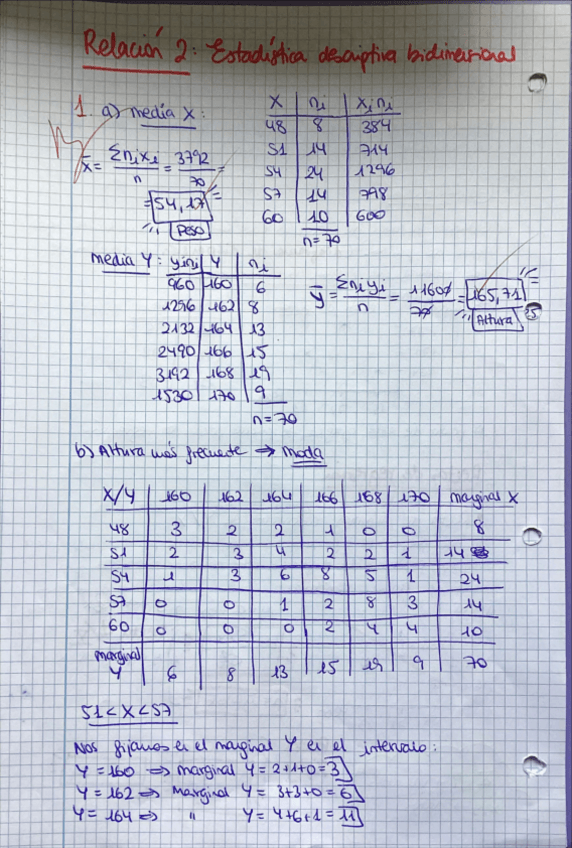 Relación 2: Estadística descriptiva bidimensional
1. a) media X:
X | ni | xi ni
48 | 8 | 384
51 | 14 | 714
54 | 24 | 1296
57 | 14 | 798
60 | 10 | 600
n=70
x̄ = Σnixi / n = 3792 / 70 =
= 54,17
Peso
media Y: yini | Y | ni
960 | 160 | 6
1296 | 162 | 8
2132 | 164 | 13
2490 | 166 | 15
3192 | 168 | 19
1530 | 170 | 9
n=70
ȳ = Σniyi / n = 11600 / 70 = 165,71
Altura
b) Altura más frecuente ⇒ moda
X/Y | 160 | 162 | 164 | 166 | 168 | 170 | marginal X
48 | 3 | 2 | 2 | 1 | 0 | 0 | 8
51 | 2 | 3 | 4 | 2 | 2 | 1 | 14
54 | 1 | 3 | 6 | 8 | 5 | 1 | 24
57 | 0 | 0 | 1 | 2 | 8 | 3 | 14
60 | 0 | 0 | 0 | 2 | 4 | 4 | 10
marginal Y | 6 | 8 | 13 | 15 | 19 | 9 | 70
51<X<57
Nos fijamos en el marginal Y en el intervalo:
Y=160 ⇒ marginal Y=2+1+0=3
Y=162 ⇒ marginal Y= 3+3+0=6
Y=164 ⇒ " Y=4+6+1=11